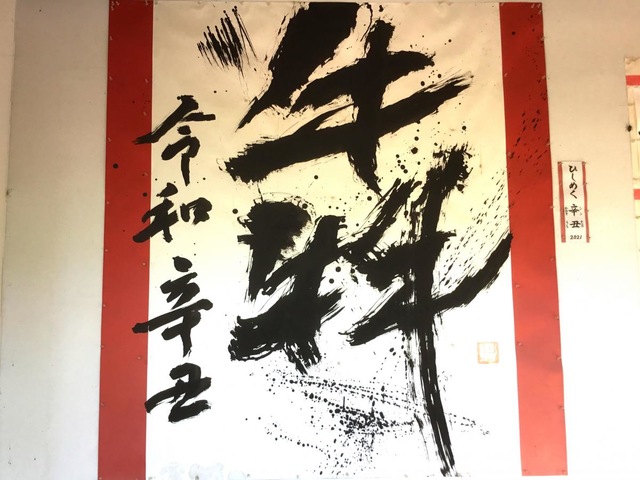 犇
令和辛丑
ひしめく 辛丑
2021